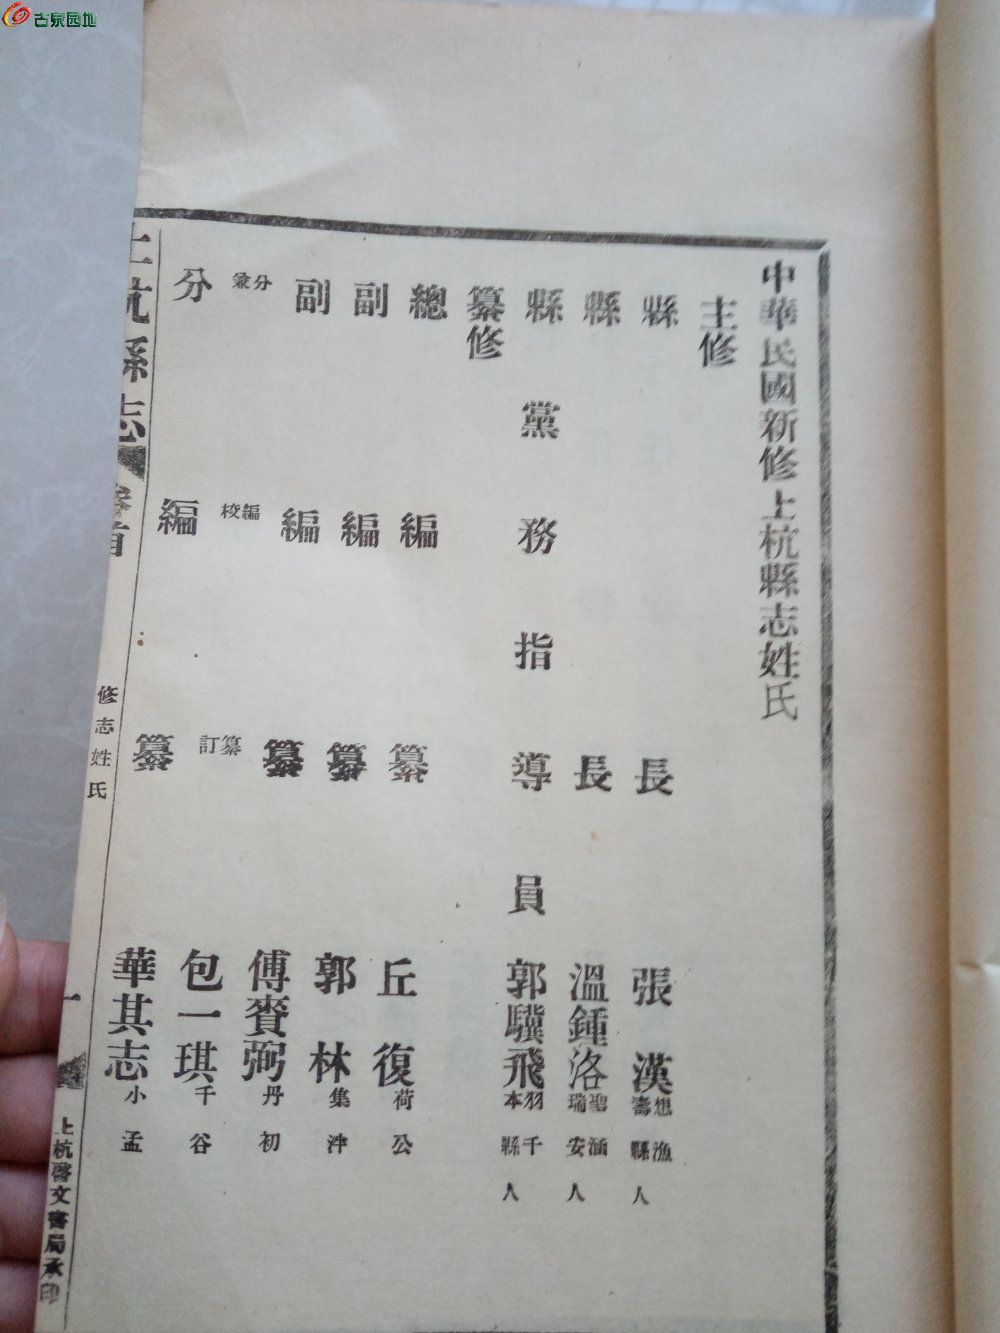 古泉园地
中華民國新修上杭縣志姓氏
主修
縣長 張漢 想漁 壽縣人
縣長 溫鍾洛 聖涵 瑞安人
縣黨務指導員 郭驥飛 羽千 本縣人
纂修
總編纂 丘復 荷公
副編纂 郭林 集沖
副編纂 傅賚弼 丹初
分編纂兼校訂 包一琪 千谷
分編纂 華其志 小孟
上杭縣志 卷首 修志姓氏 一 上杭啓文書局承印